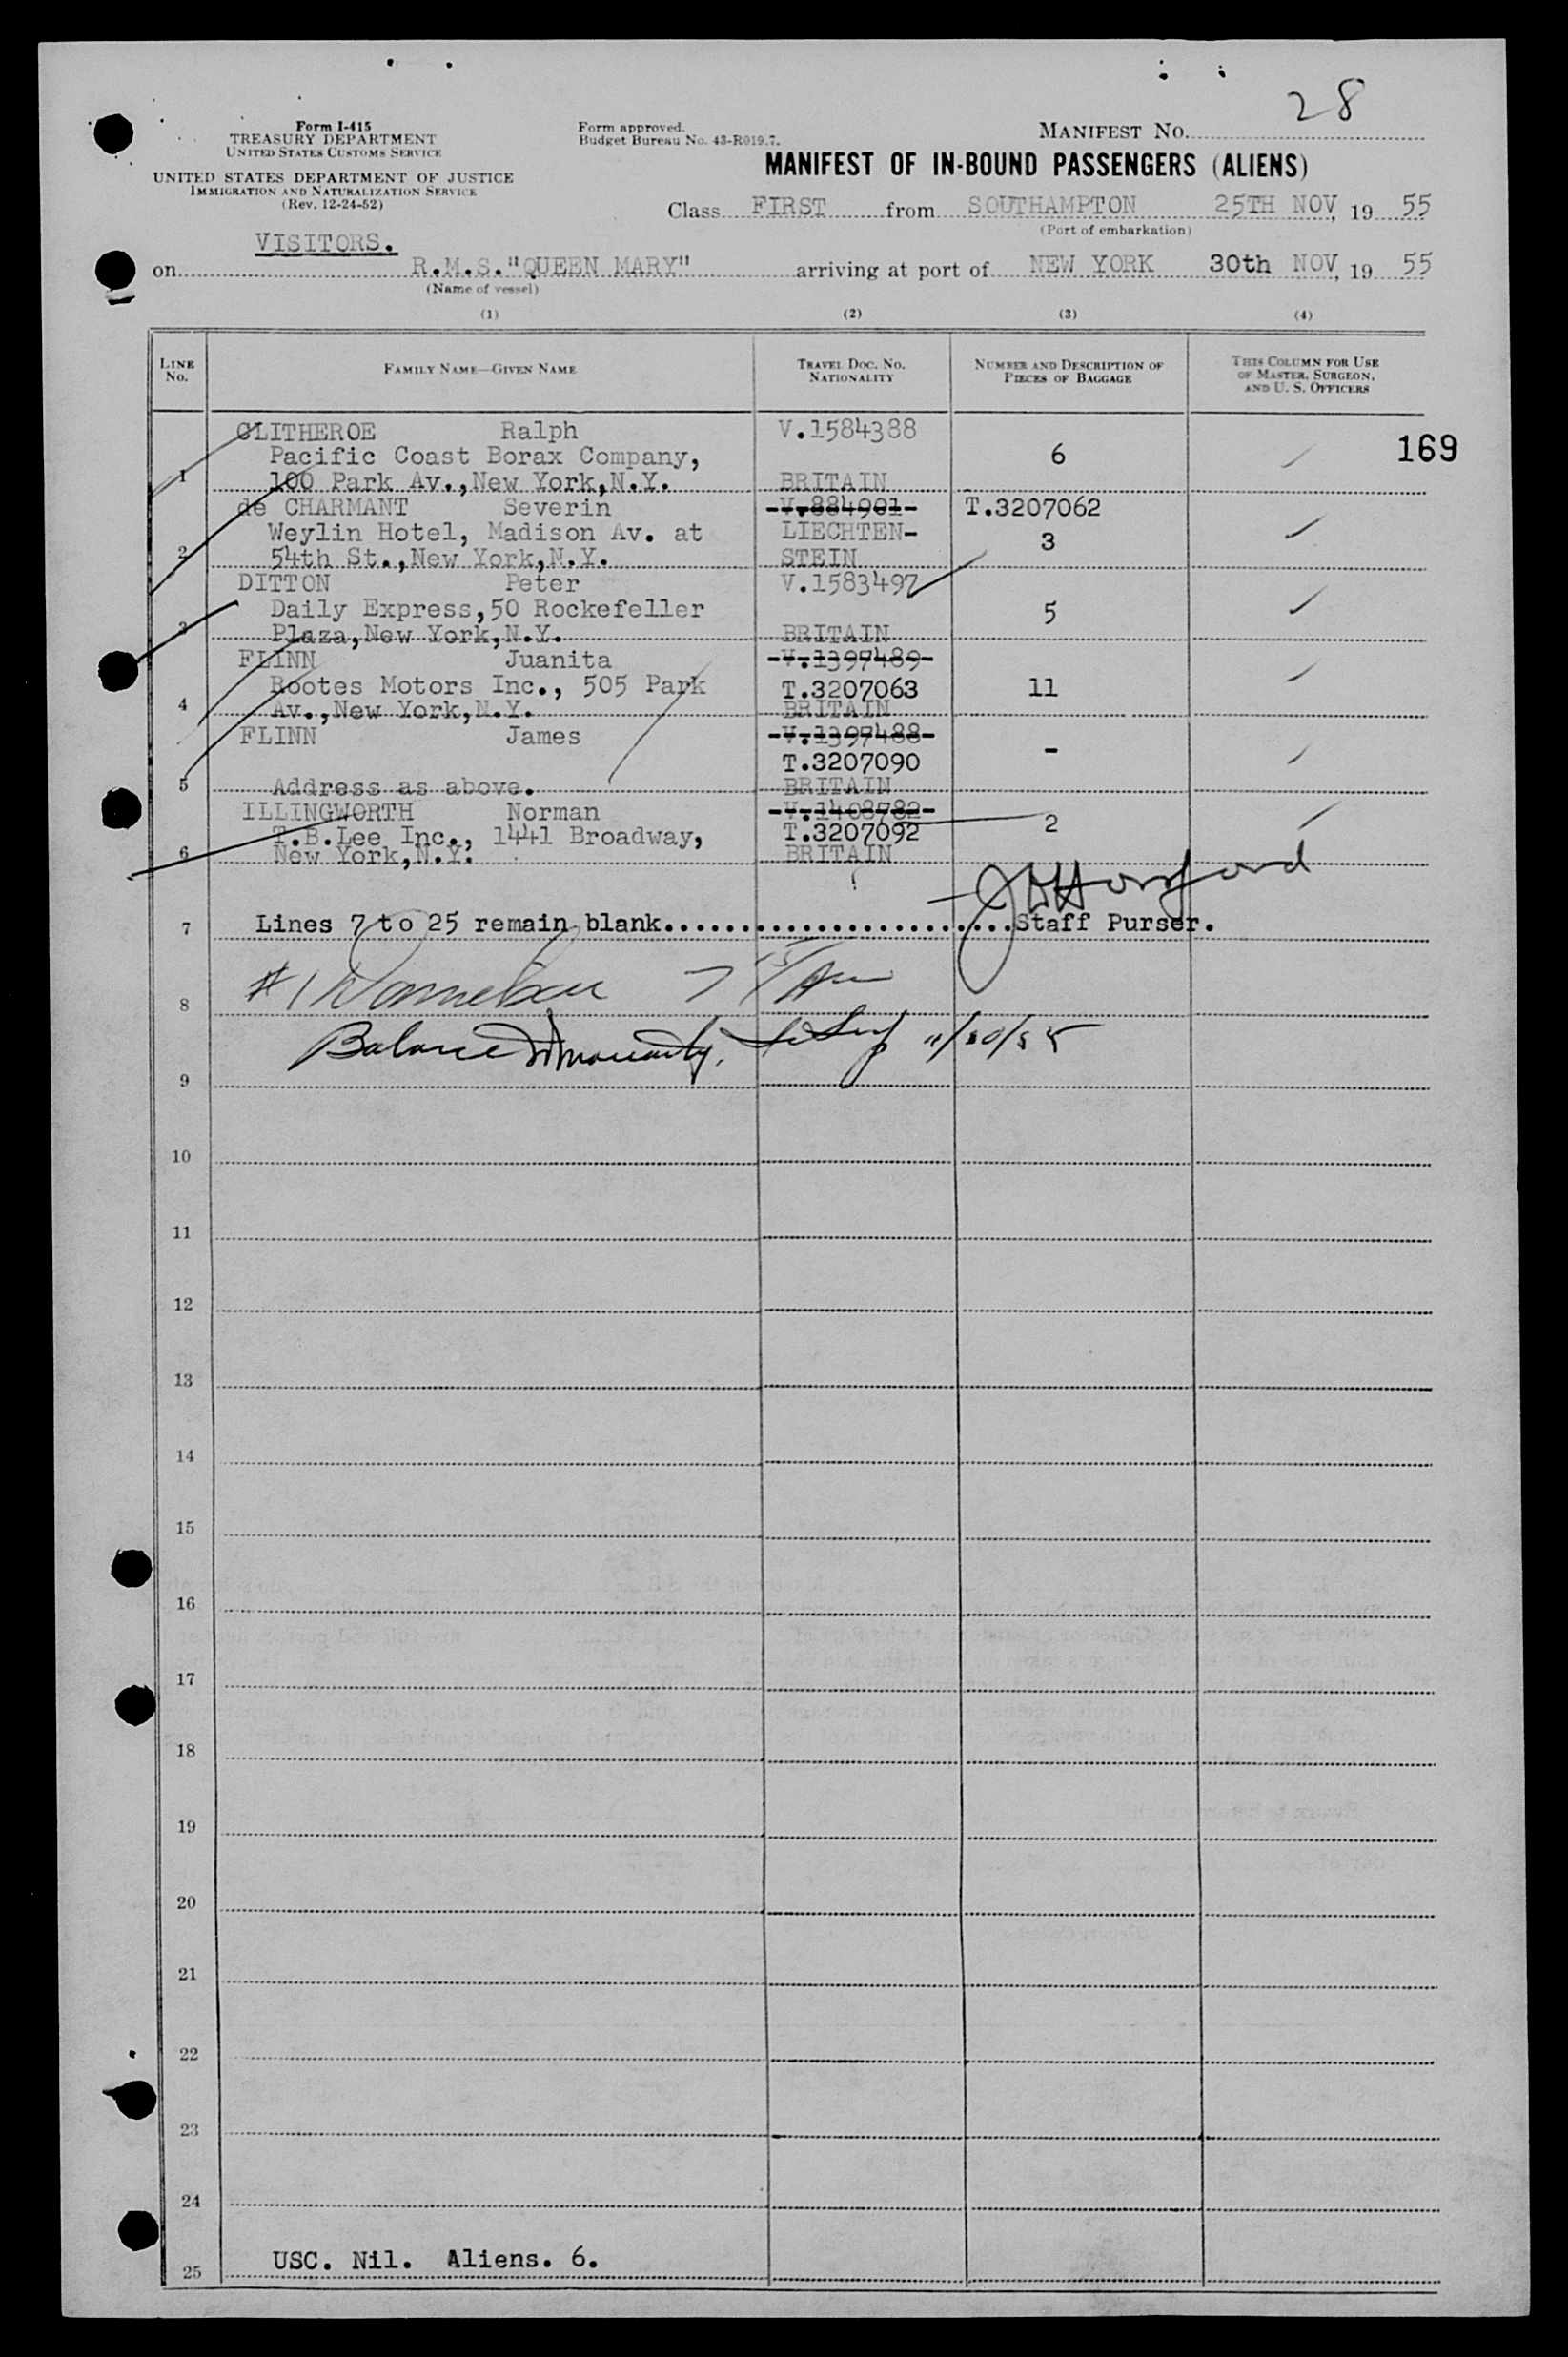 28
Form I-415
TREASURY DEPARTMENT
UNITED STATES CUSTOMS SERVICE
UNITED STATES DEPARTMENT OF JUSTICE
IMMIGRATION AND NATURALIZATION SERVICE
(Rev. 12-24-52)
Form approved.
Budget Bureau No. 43-R019.7.
MANIFEST NO.
MANIFEST OF IN-BOUND PASSENGERS (ALIENS)
Class FIRST from SOUTHAMPTON 25TH NOV, 19 55
(Port of embarkation)
VISITORS.
on R.M.S."QUEEN MARY" arriving at port of NEW YORK 30th NOV, 19 55
(Name of vessel)
(1) (2) (3) (4)
LINE No. FAMILY NAME—GIVEN NAME TRAVEL DOC. NO. NATIONALITY NUMBER AND DESCRIPTION OF PIECES OF BAGGAGE THIS COLUMN FOR USE OF MASTER, SURGEON, AND U. S. OFFICERS
CLITHEROE Ralph V.1584388
Pacific Coast Borax Company, 6 169
1 100 Park Av.,New York,N.Y. BRITAIN
de CHARMANT Severin -V.884901- T.3207062
Weylin Hotel, Madison Av. at LIECHTEN- 3
2 54th St.,New York,N.Y. STEIN
DITTON Peter V.1583497
Daily Express,50 Rockefeller 5
3 Plaza,New York,N.Y. BRITAIN
FLINN Juanita -V.1397489-
Rootes Motors Inc., 505 Park T.3207063 11
4 Av.,New York,N.Y. BRITAIN
FLINN James -V.1397488-
T.3207090 -
5 Address as above. BRITAIN
ILLINGWORTH Norman -V.1408782-
T.B.Lee Inc., 1441 Broadway, T.3207092 2
6 New York,N.Y. BRITAIN
7 Lines 7 to 25 remain blank..........................Staff Purser.
8 #1
9 Balance 11/30/55
10
11
12
13
14
15
16
17
18
19
20
21
22
23
24
25 USC. Nil. Aliens. 6.